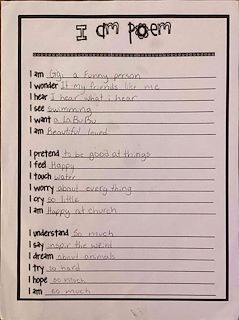 I am Poem
I am Gigi a funny person
I wonder If my friends like me
I hear I hear what i hear
I see swimming
I want a LaBuBu
I am Beautiful loved
I pretend to be good at things
I feel Happy
I touch water
I worry about everything
I cry so little
I am Happy at church
I understand So much
I say inspir the weird
I dream about animals
I try so hard
I hope so much
I am so much